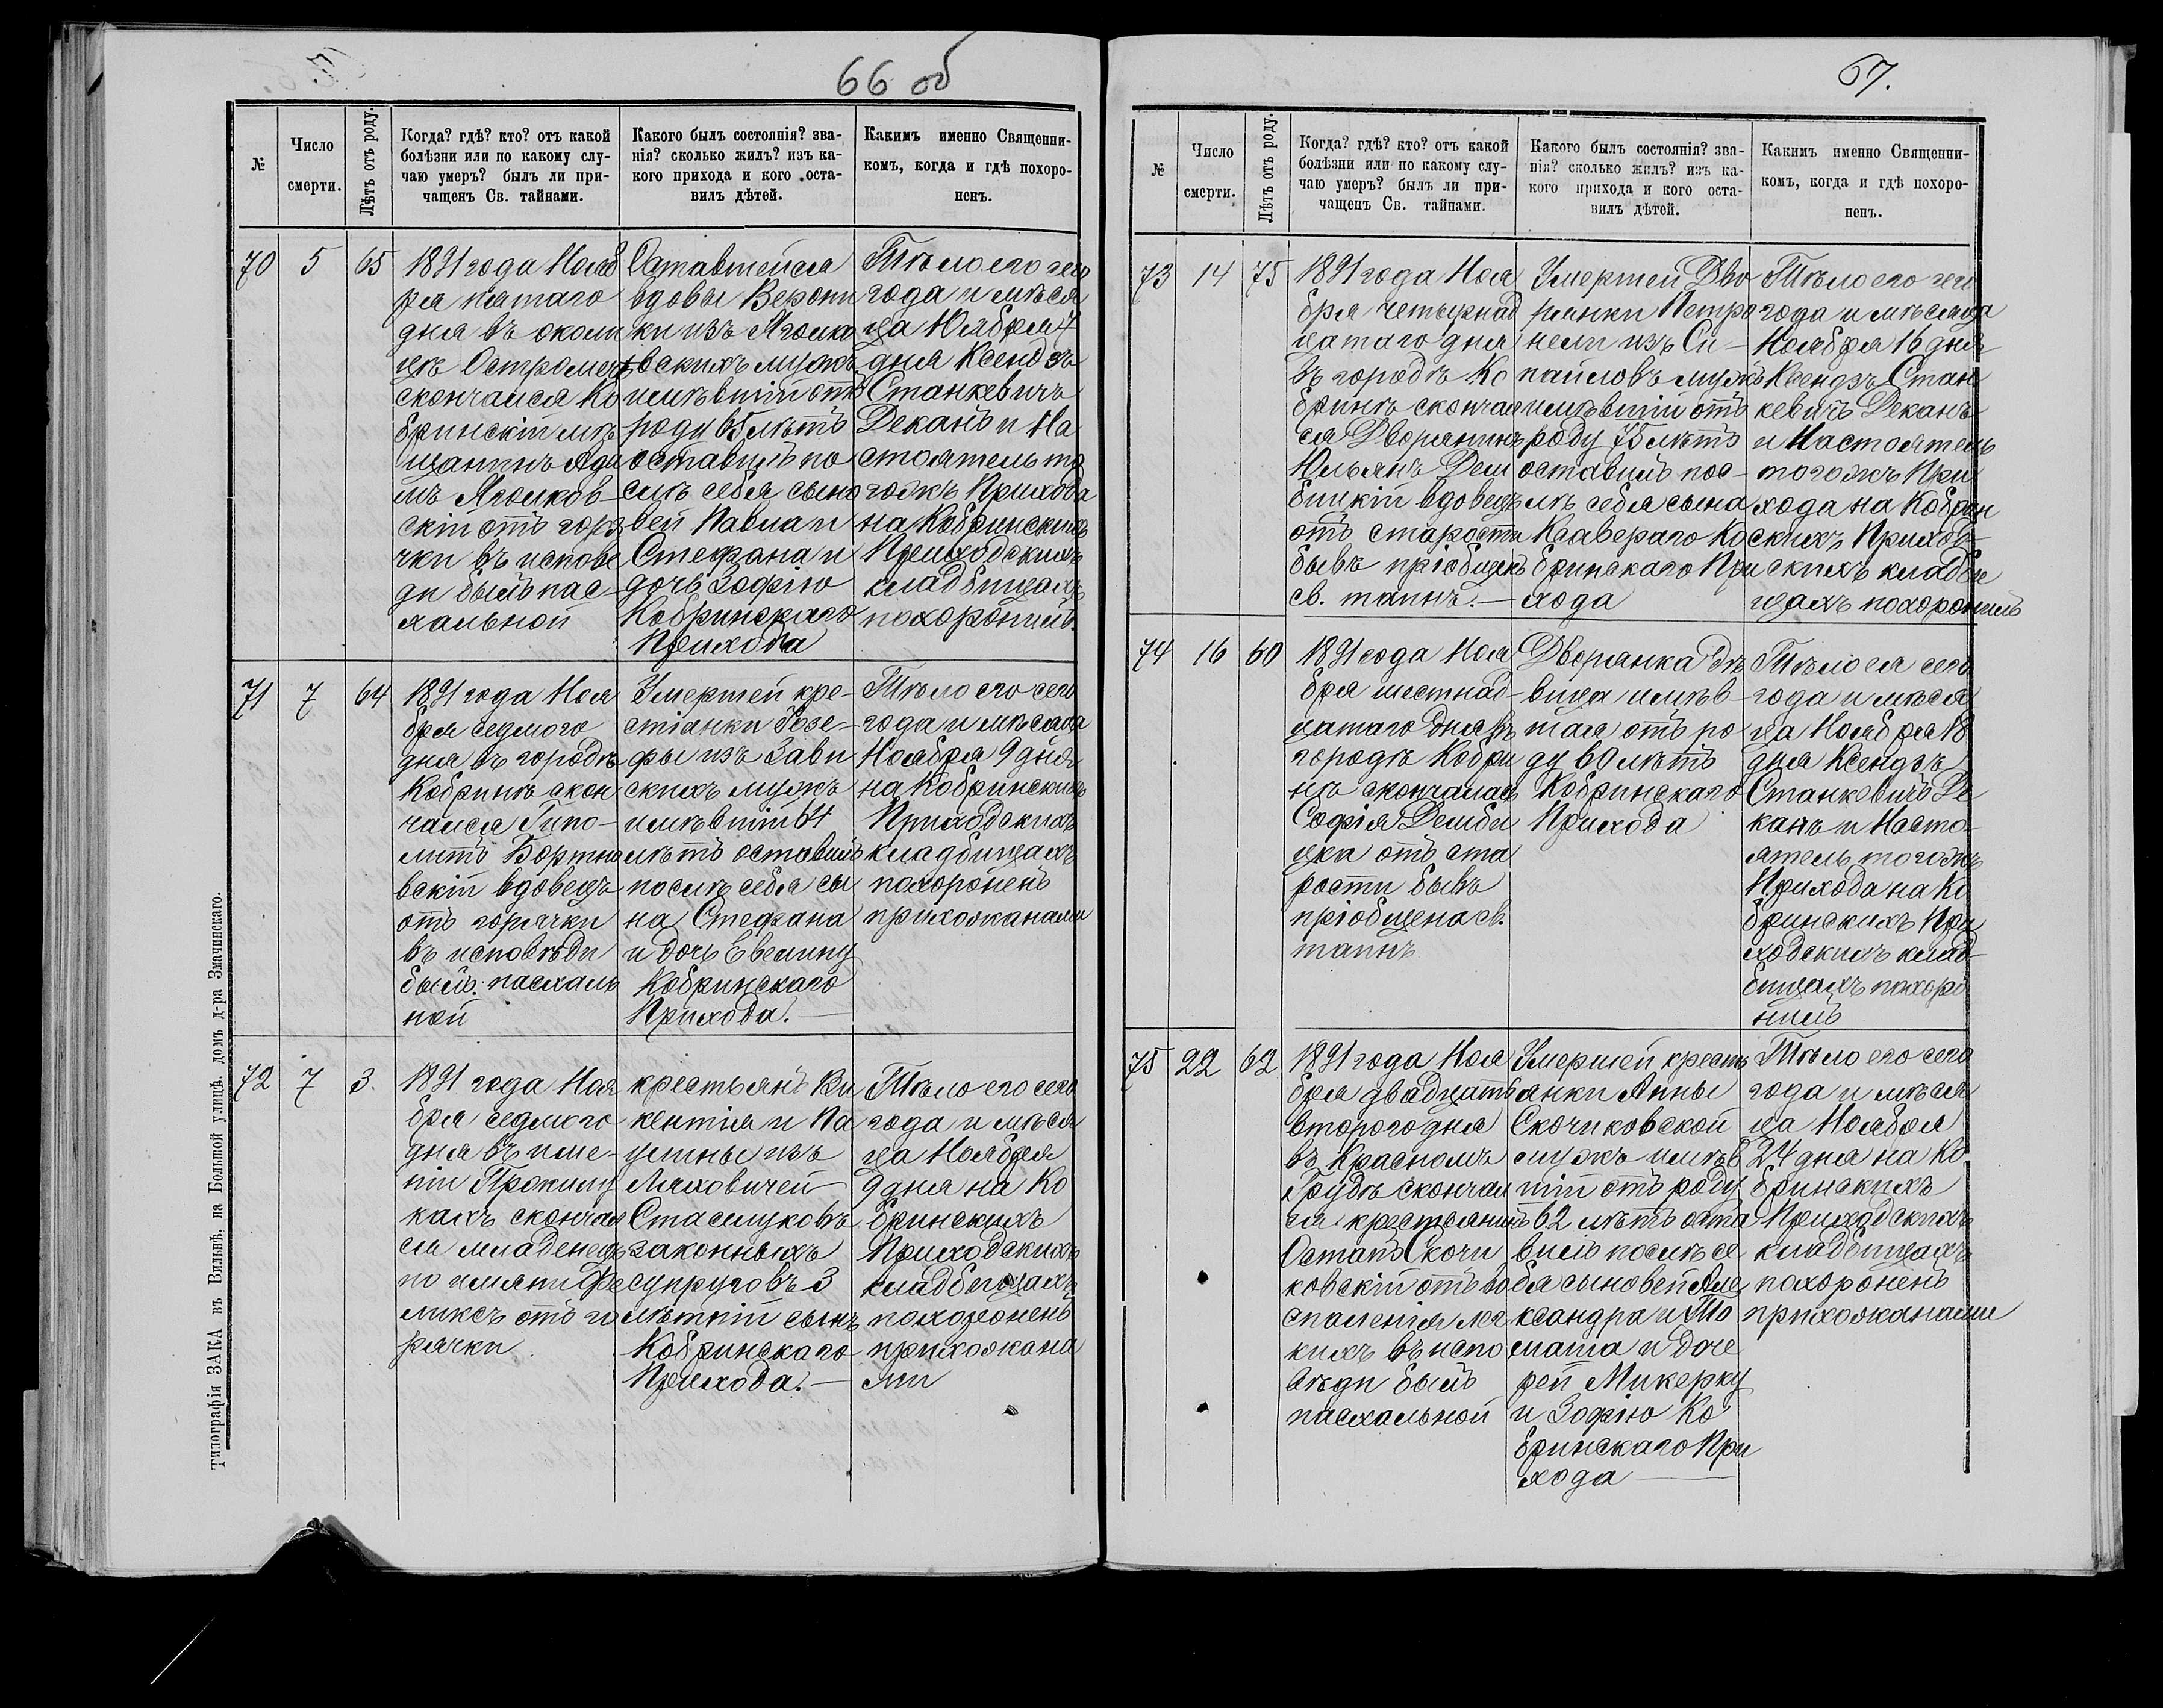 66 об
№
Число
смерти.
Лѣтъ отъ роду.
Когда? гдѣ? кто? отъ какой
болѣзни или по какому слу-
чаю умеръ? былъ ли при-
чащенъ Св. тайнами.
Какого былъ состоянія? зва-
нія? сколько жилъ? изъ ка-
кого прихода и кого оста-
вилъ дѣтей.
Какимъ именно Священни-
комъ, когда и гдѣ похоро-
ненъ.
70
5
65
1891 года Нояб
ря пятаго
дня въ околи
цѣ Остромечь
скончался Ко
бринскій мѣ
щанинъ Ада
мъ Ягоиков-
скій отъ горя
чки въ испове
ди былъ пас-
хальной
Оставшейся
вдовы Верони
ки изъ
овскихъ мужъ
имѣвшій отъ
роду 65 лѣтъ
оставилъ по
слѣ себя сыно
вей Павла и
Стефана и
дочь Зофію
Кобринскаго
Прихода
Тѣло его сего
года и мѣся
ца Ноября 7
дня Ксендзъ
Станкевичъ
Деканъ и На
стоятель то
гожъ Прихода
на Кобринскихъ
Приходскихъ
кладбищахъ
похоронилъ.
71
7
64
1891 года Ноя
бря седмого
дня въ городѣ
Кобринѣ скон
чался Гипо-
литъ Бортно
вскій вдовецъ
отъ горячки
въ исповѣди
былъ пасхаль
ной
Умершей кре-
стіанки Юзе-
фы изъ Зави
скихъ мужъ
имѣвшій 64
лѣтъ оставилъ
послѣ себя сы
на Стефана
и дочь Евелину
Кобринскаго
Прихода.
Тѣло его сего
года и мѣсяца
Ноября 9 дня
на Кобринскихъ
Приходскихъ
кладбищахъ
похороненъ
прихожанами
72
7
3.
1891 года Ноя
бря седмого
дня въ име-
ніи Прокину
кахъ скончал
ся младенецъ
по имяни Фе
ликсъ отъ го
рячки
крестьянъ Ви
кентія и Па
улины изъ
Ляховичей
Стасюковъ
законныхъ
супруговъ 3
лѣтній сынъ
Кобринскаго
Прихода.
Тѣло его сего
года и мѣся
ца Ноября
9 дня на Ко
бринскихъ
Приходскихъ
кладбищахъ
похороненъ
прихожана
ми
Типографія ЗАКА въ Вильнѣ. на Большой улицѣ. домъ д-ра Змачинскаго.
67.
№
Число
смерти.
Лѣтъ отъ роду.
Когда? гдѣ? кто? отъ какой
болѣзни или по какому слу-
чаю умеръ? былъ ли при-
чащенъ Св. тайнами.
Какого былъ состоянія? зва-
нія? сколько жилъ? изъ ка-
кого прихода и кого оста-
вилъ дѣтей.
Какимъ именно Священни-
комъ, когда и гдѣ похоро-
ненъ.
73
14
75
1891 года Ноя
бря четырнад
цатаго дня
въ городѣ Ко
бринѣ скончал
ся Дворянинъ
Юльянъ Дем
бицкій вдовецъ
отъ старости
бывъ пріобщенъ
св. таинъ.
Умершей Дво
рянки Петро
нели изъ Си-
пайловъ мужъ
имѣвшій отъ
роду 75 лѣтъ
оставилъ пос-
лѣ себя сына
Ксавераго Ко
бринскаго При
хода
Тѣло его сего
года и мѣсяца
Ноября 16 дня
Ксендзъ Стан
кевичъ Деканъ
и Настоятель
тогожъ При
хода на Кобрин
скихъ Приход
скихъ кладби
щахъ похоронилъ
74
16
60
1891 года Ноя
бря шестнад-
цатаго дня въ
городѣ Кобри
нѣ скончалась
Софія Демби
цка отъ ста
рости бывъ
пріобщена св.
таинъ
Дворянка дѣ
вица имѣв-
шая отъ ро
ду 60 лѣтъ
Кобринскаго
Прихода
Тѣло ея сего
года и мѣся
ца Ноября 18
дня Ксендзъ
Станкевичъ Де
канъ и Насто-
ятель тогожъ
Прихода на Ко
бринскихъ При
ходскихъ клад-
бищахъ похоро
нилъ
75
22
62
1891 года Ноя
бря двадцать
второго дня
въ Красномъ
Грудѣ скончал
ся крестьянинъ
Остапъ Скочи
ковскій отъ во
спаленія лег
кихъ въ испо
вѣди былъ
пасхальной
Умершей кресть
янки Анны
Скочиковской
мужъ имѣв
шій отъ роду
62 лѣтъ оста
вилъ послѣ се
бя сыновей Але
ксандра и То
маша и доче
рей Микерку
и Зофію Ко
бринскаго При
хода
Тѣло его сего
года и мѣся
ца Ноября
24 дня на Ко
бринскихъ
Приходскихъ
кладбищахъ
похороненъ
прихожанами